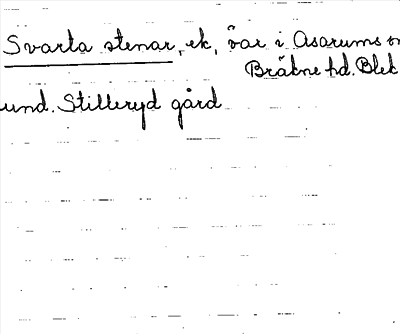 Svarta stenar, ek, övar i Asarums
Bräkne hd. Blek
und. Stilleryd gård